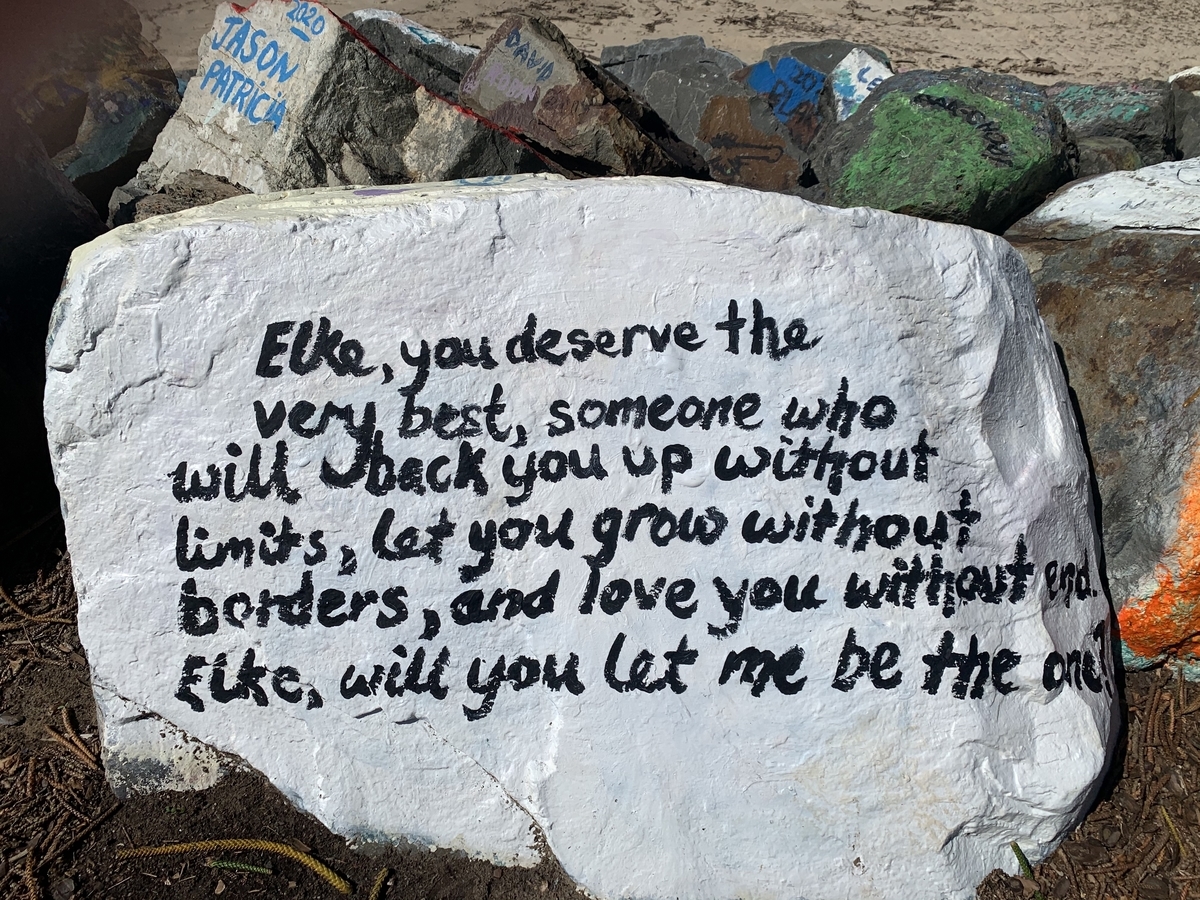 2020
JASON
PATRICIA
DAVID
Elke, you deserve the
very best, someone who
will back you up without
limits, let you grow without
borders, and love you without end.
Elke, will you let me be the one?